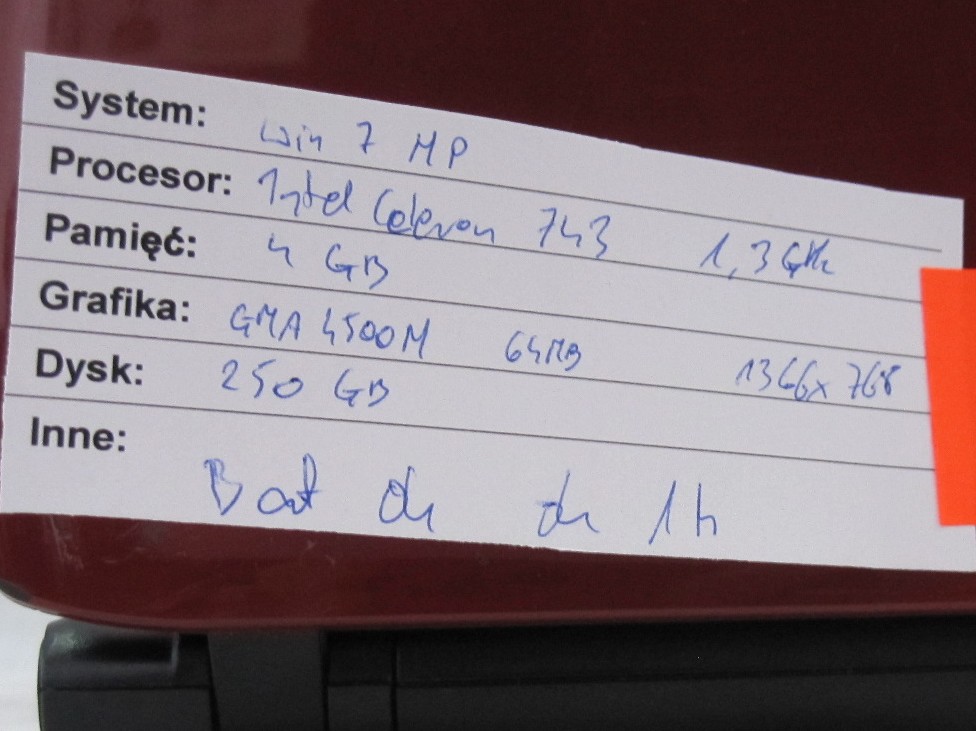 System: Win 7 HP
Procesor: Intel Celeron 743 1,3 GHz
Pamięć: 4 GB
Grafika: GMA 4500M 64MB 1366x768
Dysk: 250 GB
Inne:
Bat ok ok 1h